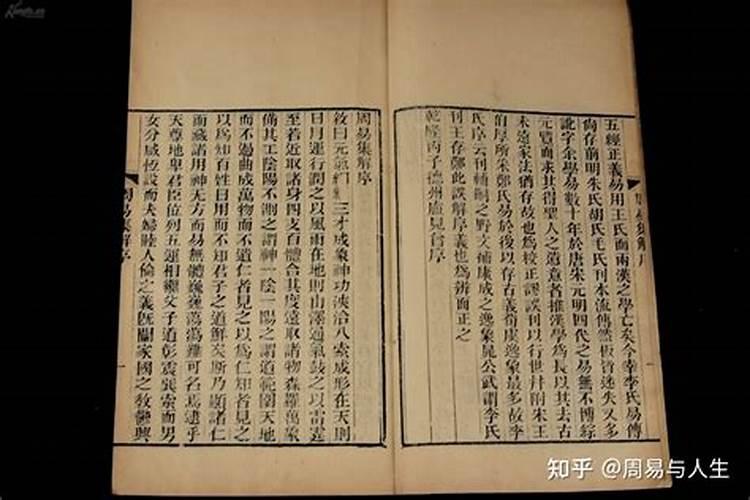 五經正義易用王氏而兩漢之學亡矣今幸李氏易傳
尙存前明朱氏胡氏毛氏刊本流傳然板皆迷失又多
訛字余學易數十年於唐宋元明四代之易無不博綜
元覽而求其得聖人之遺意者推漢學爲長以其去古
未遠家法猶存故也爲校正謬誤刊以行世幷附朱王
伯厚所朱鄭氏易於後以存古義荀虞逸象最多故李
氏序云刊輔嗣之野文補康成之逸象晁公武謂李氏
刊王存鄭此誤解序義也爲辨而正之
乾隆丙子德州盧見曾序
周易集解序
周易集解序
敘曰元氣 三才成象神功浹洽八索成形在天則
日月運行潤之以風雨在地則山澤通氣鼓之以雷霆
至若近取諸身四支百體合其度遠取諸物森羅萬象
備其工陰陽不測之謂神一陰一陽之謂道範圍天地
而不過曲成萬物而不遺仁者見之以爲仁知者見之
以爲知百姓日用而不知君子之道鮮矣斯乃顯諸仁
而藏諸用神无方而易無體巍巍蕩蕩難可名焉逮乎
天尊地卑君臣位列五運相繼父子道彰震巽索而男
女分咸恆設而夫婦睦人倫之義旣闡家國之敎鬱興
周易集解序
知乎 @周易与人生